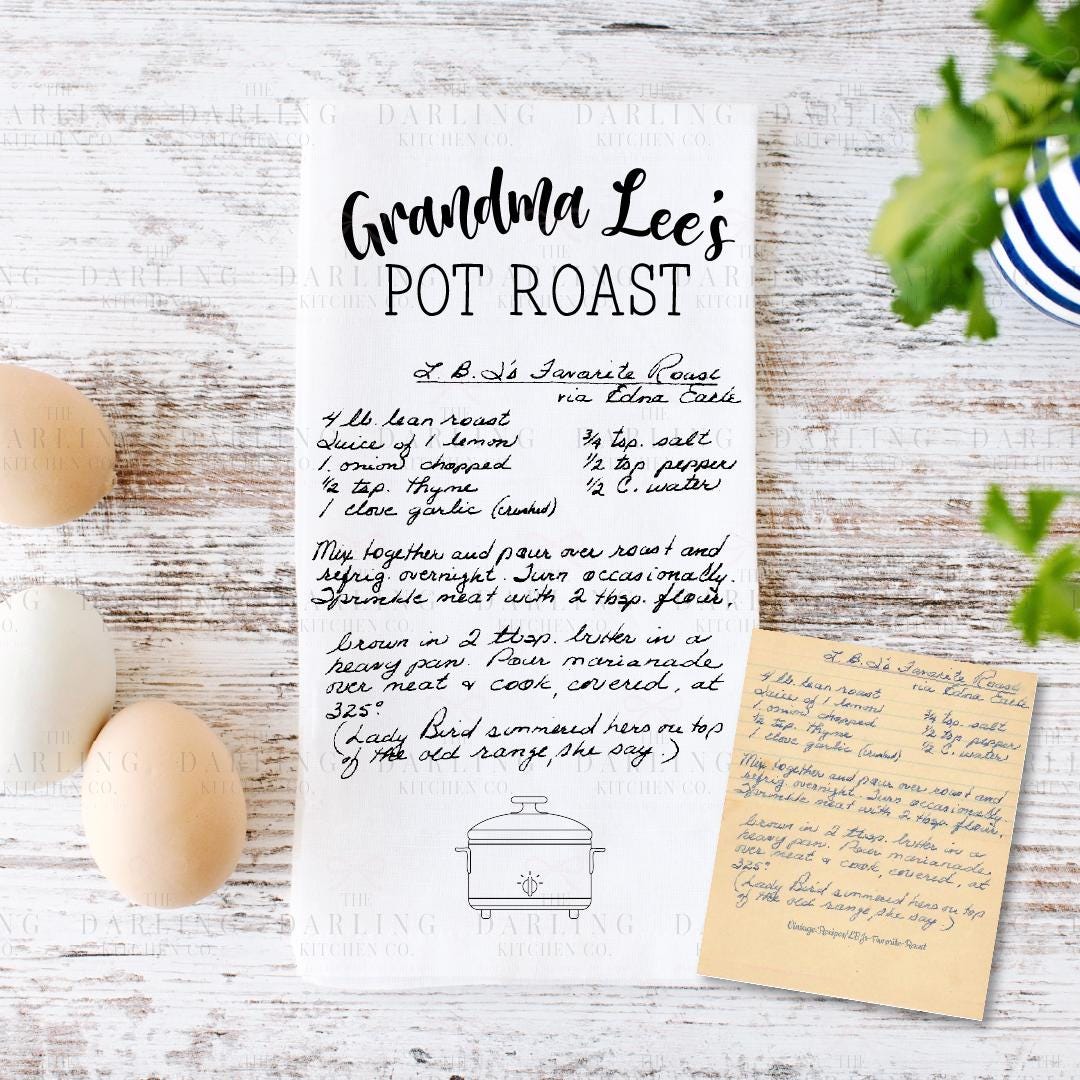 Grandma Lee's
POT ROAST
L. B. J's Favarite Roast
via Edna Earle
4 lb. lean roast
Juice of 1 lemon
3/4 tsp. salt
1 onion chopped
1/2 tsp pepper
1/2 tsp. thyme
1/2 C. water
1 clove garlic (crushed)
Mix together and pour over roast and
refrig. overnight. Turn occasionally.
Sprinkle meat with 2 tbsp. flour,
brown in 2 tbsp. butter in a
heavy pan. Pour marianade
over meat & cook, covered, at
325°
(Lady Bird simmered hers on top
of the old range, she say.)
L. B. J's Favarite Roast
via Edna Earle
4 lb. lean roast
Juice of 1 lemon
3/4 tsp. salt
1 onion chopped
1/2 tsp pepper
1/2 tsp. thyme
1/2 C. water
1 clove garlic (crushed)
Mix together and pour over roast and
refrig. overnight. Turn occasionally.
Sprinkle meat with 2 tbsp. flour,
brown in 2 tbsp. butter in a
heavy pan. Pour marianade
over meat & cook, covered, at
325°
(Lady Bird simmered hers on top
of the old range, she say.)
Vintage-Recipes/LBJs-Favorite-Roast
THE
DARLING
KITCHEN CO.